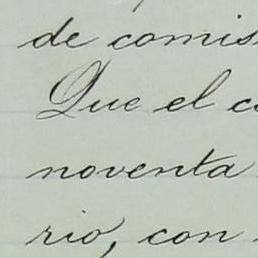 de comis
Que el c
noventa
rio, con